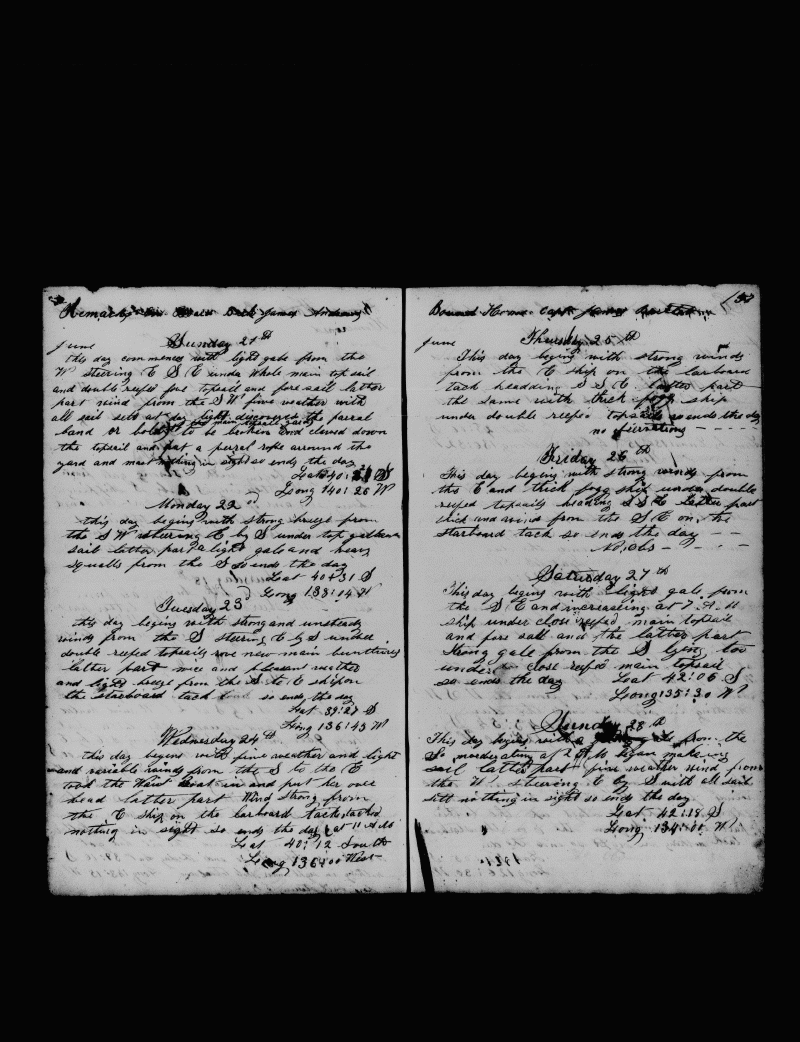 Remarks on Board Bark James Andrews
June Sunday 21st
this day commences with light gale from the
W steering E S E under whole main topsail
and double reefed fore topsail and foresail latter
part wind from the S W fine weather with
all sail sets at day light discovered the parral
of the main topsail yard
band or bolt to be broken and clewed down
the topsail and put a parral rope arround the
yard and mast nothing in sight so ends the day
Lat 40: S
Long 140: 28 W
Monday 22nd
this day begins with strong breeze from
the S W steering E by S under top gallan
sail latter part a light gale and heavy
squalls from the S so ends the day
Lat 40 31 S
Long 138: 04 W
Tuesday 23
this day begins with strong and unsteady
winds from the S steering E by S under
double reefed topsails rove new main buntlines
latter part nice and pleasant weather
and light breeze from the S to E ship on
the starboard tack so ends the day
Lat 39: 27 S
Long 136: 43 W
Wednesday 24th
this day begins with fine weather and light
and variable winds from the S to the E
took the Waist Boat in and put her over
head latter part Wind strong from
the E ship on the larboard tack tacked
nothing in sight so ends the day at 11 A M
Lat 40: 12 South
Long 136: 00 West
Bound Home Capt James
June Thursday 25th
This day begins with strong winds
from the E ship on the larboard
tack heading S S E latter part
the same with thick fogg ship
under double reefed topsails so ends the day
no observations
Friday 26th
This day begins with strong winds from
the E and thick fogg ship under double
reefed topsails heading S S E Latter part
thick and wind from the S E on the
starboard tack so ends the day
No, Obs
Saturday 27th
This day begins with light gale from
the S E and increasing at 7 A M
ship under close reefed main topsail
and fore sail and the latter part
Strong gale from the S lying too
under close reefed main topsail
so ends the day Lat 42: 06 S
Long 135: 30 W
Sunday 28th
This day begins with a from the
So moderating at 2 P M began making
sail latter part fine weather wind from
the W steering E by S with all sail
sett nothing in sight so ends the day
Lat 42: 18 S
Long 134: 00 W